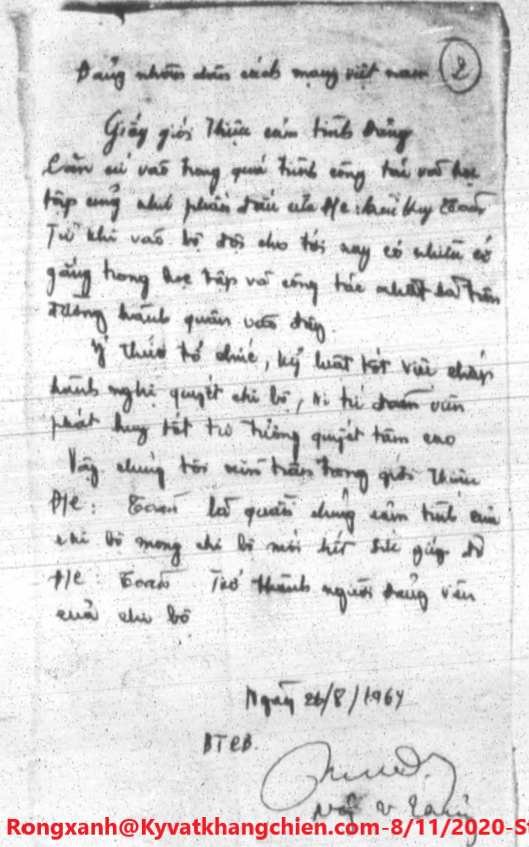 Đảng nhân dân cách mạng việt nam 2
Giấy giới thiệu cảm tình Đảng
Căn cứ vào trong quá trình công tác và học
tập cũng như phấn đấu của Đ/c:
Từ khi vào bộ đội cho tới nay có nhiều cố
gắng trong học tập và công tác nhất là trên
đường hành quân vào đây.
Ý thức tổ chức, kỷ luật tốt việc chấp
hành nghị quyết chi bộ, đoàn viên
phát huy tốt tư tưởng quyết tâm cao
Vậy chúng tôi xin trân trọng giới thiệu
Đ/c: Toản là quần chúng cảm tình của
chi bộ mong chi bộ mới hết sức giúp đỡ
Đ/c: Toản Trở thành người đảng viên
của chi bộ
Ngày 26/8/1967
BTCB.
Rongxanh@Kyvatkhangchien.com-8/11/2020-S